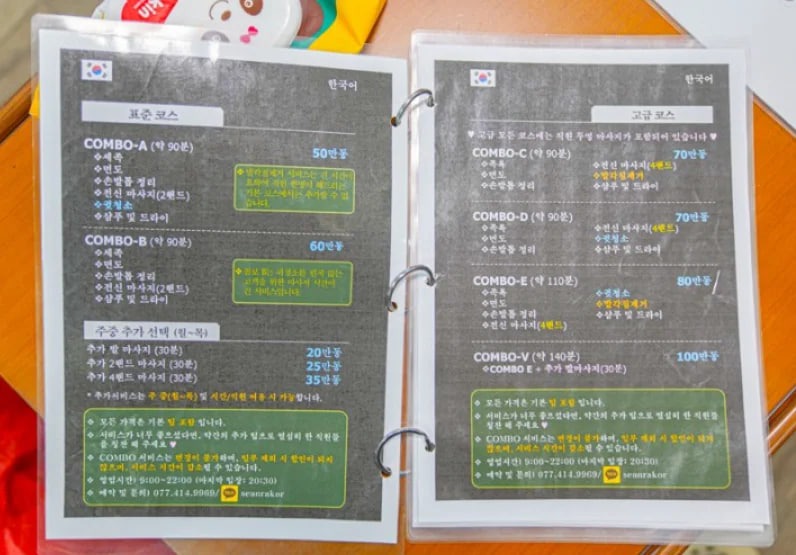 한국어
표준 코스
COMBO-A (약 90분) 50만동
❖세족
❖면도
❖손발톱 정리
❖전신 마사지(2핸드)
❖귓청소
❖샴푸 및 드라이
COMBO-B (약 90분) 60만동
❖세족
❖면도
❖손발톱 정리
❖전신 마사지(2핸드)
❖샴푸 및 드라이
주중 추가 선택 (월~목)
추가 발 마사지 (30분) 20만동
추가 2핸드 마사지 (30분) 25만동
추가 4핸드 마사지 (30분) 35만동
* 추가서비스는 주 중(월~목) 및 시간/직원 여유 시 가능합니다.
❖ 모든 가격은 기본 팁 포함 입니다.
❖ 서비스가 너무 좋으셨다면, 약간의 추가 팁으로 열심히 한 직원들
을 칭찬 해 주세요♥
❖ COMBO 서비스는 변경이 불가하며, 일부 제외 시 할인이 되지
않으며, 서비스 시간이 감소될 수 있습니다.
❖ 영업시간) 9:00~22:00 (마지막 입장: 20:30)
❖ 예약 및 문의) 077.414.9969/ seanrakor
한국어
고급 코스
♥ 고급 모든 코스에는 직원 두명 마사지가 포함되어 있습니다 ♥
COMBO-C (약 90분) 70만동
❖족욕
❖면도
❖손발톱 정리
❖전신 마사지(4핸드)
❖발각질제거
❖샴푸 및 드라이
COMBO-D (약 90분) 70만동
❖족욕
❖면도
❖손발톱 정리
❖전신 마사지(4핸드)
❖귓청소
❖샴푸 및 드라이
COMBO-E (약 110분) 80만동
❖족욕
❖면도
❖손발톱 정리
❖전신 마사지(4핸드)
❖귓청소
❖발각질제거
❖샴푸 및 드라이
COMBO-V (약 140분) 100만동
❖COMBO E + 추가 발마사지(30분)
❖ 모든 가격은 기본 팁 포함 입니다.
❖ 서비스가 너무 좋으셨다면, 약간의 추가 팁으로 열심히 한 직원들
칭찬 해 주세요♥
❖ COMBO 서비스는 변경이 불가하며, 일부 제외 시 할인이 되지
않으며, 서비스 시간이 감소될 수 있습니다.
❖ 영업시간) 9:00~22:00 (마지막 입장: 20:30)
❖ 예약 및 문의) 077.414.9969/ seanrakor